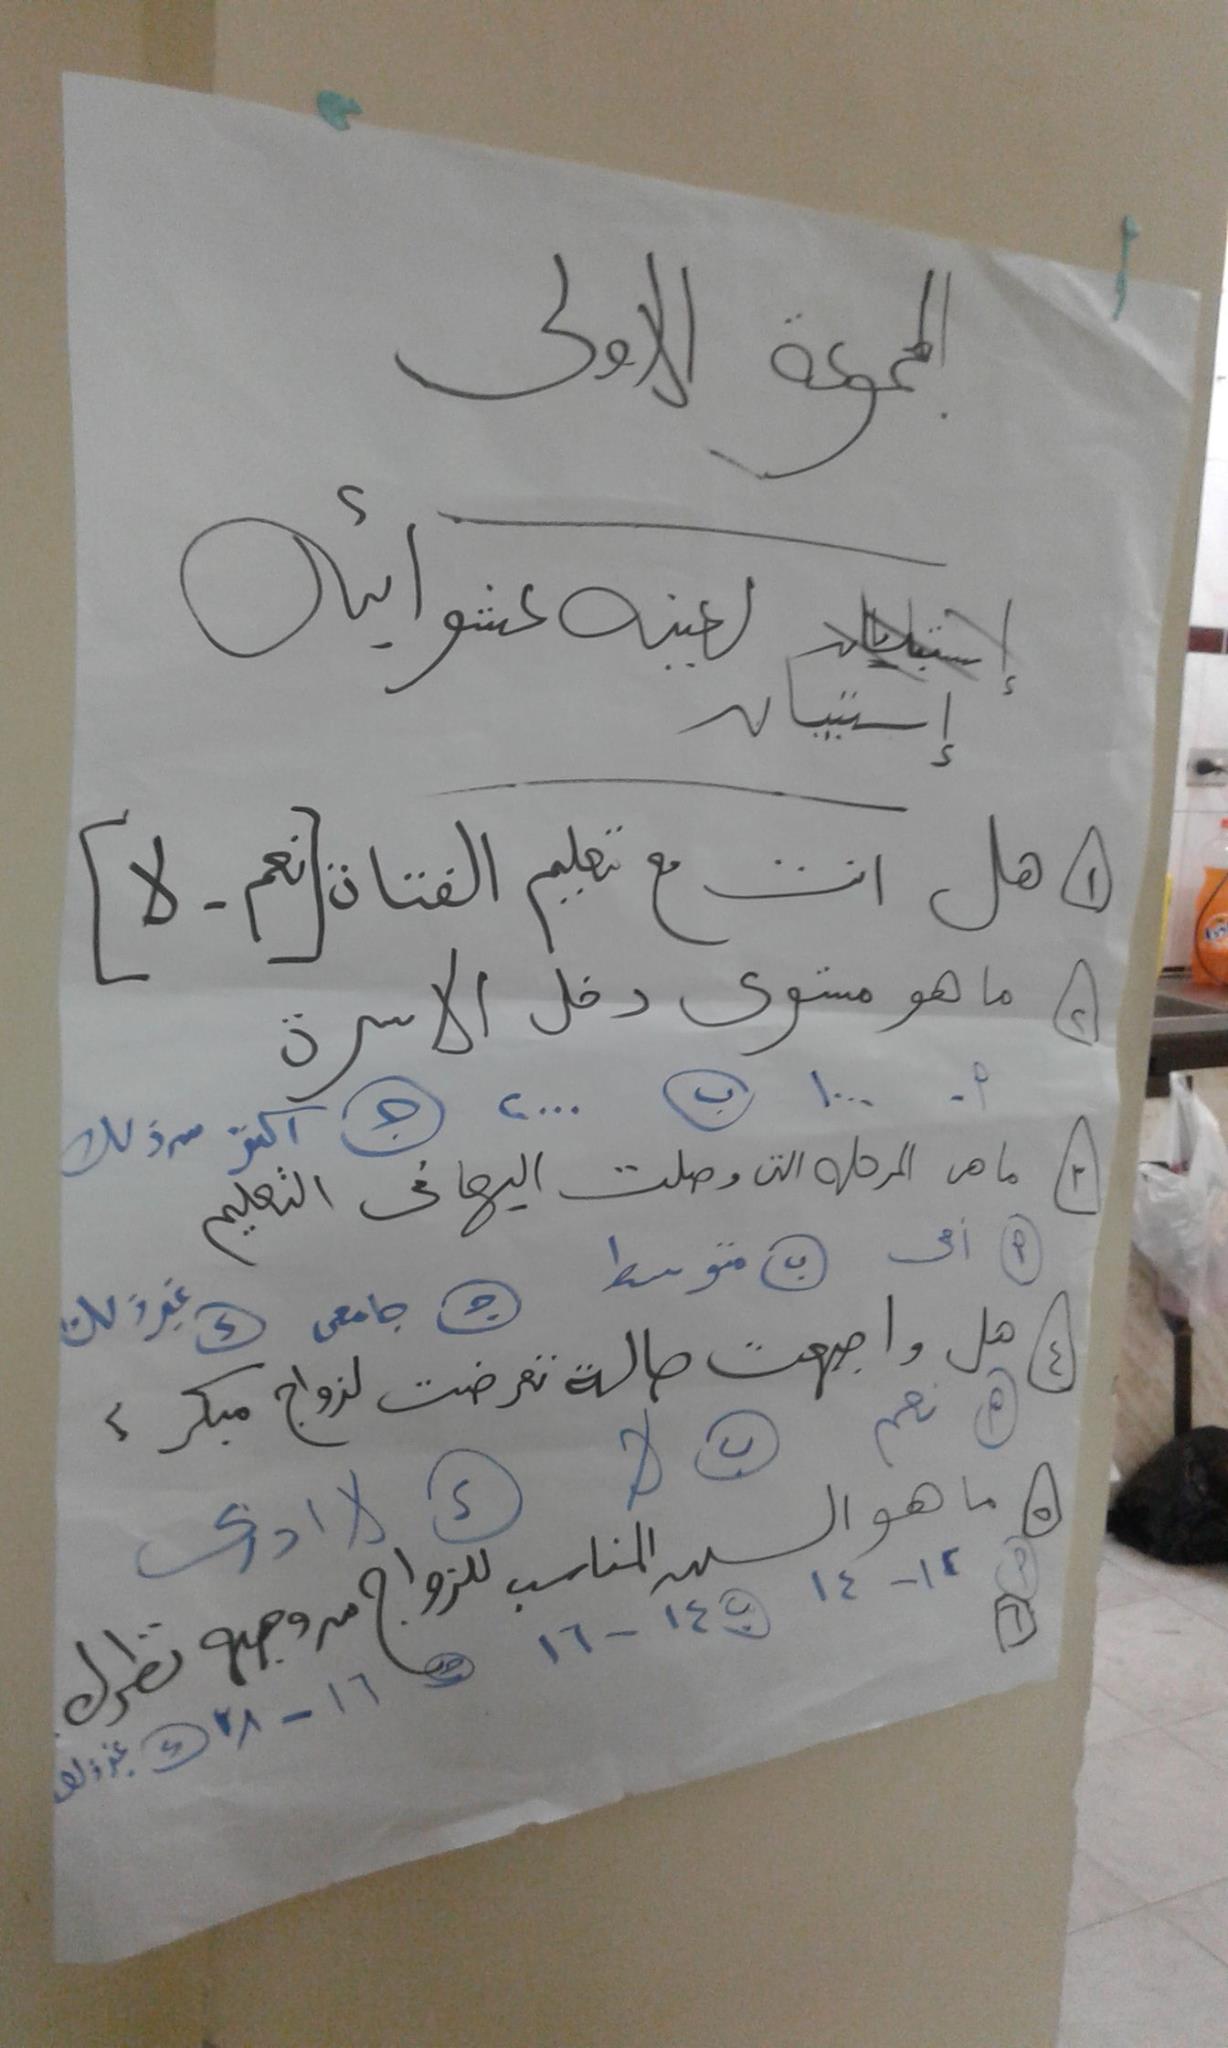 المجموعة الاولى
لعينه عشوائيه
إستبيان
١ هل انت مع تعليم الفتاة [نعم - لا]
٢ ما هو مستوى دخل الاسرة
أ- ١٠٠٠ ب ٢٠٠٠ ج أكثر من ذلك
٣ ما هى المرحله التى وصلت اليها فى التعليم
أ أمى ب متوسط ج جامعى د غير ذلك
٤ هل واجهت حالة تعرضت لزواج مبكر ؟
أ نعم ب لا د لا ادرى
٥ ما هو السن المناسب للزواج من وجهه نظرك
أ ١٢ - ١٤ ب ١٤ - ١٦ ج ١٦ - ٢٨ د غير ذلك
٦